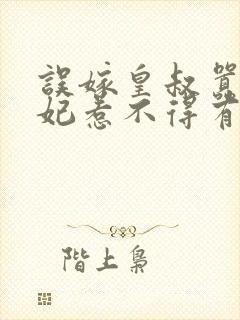 誤嫁皇叔
妃惹不得有
階上梟